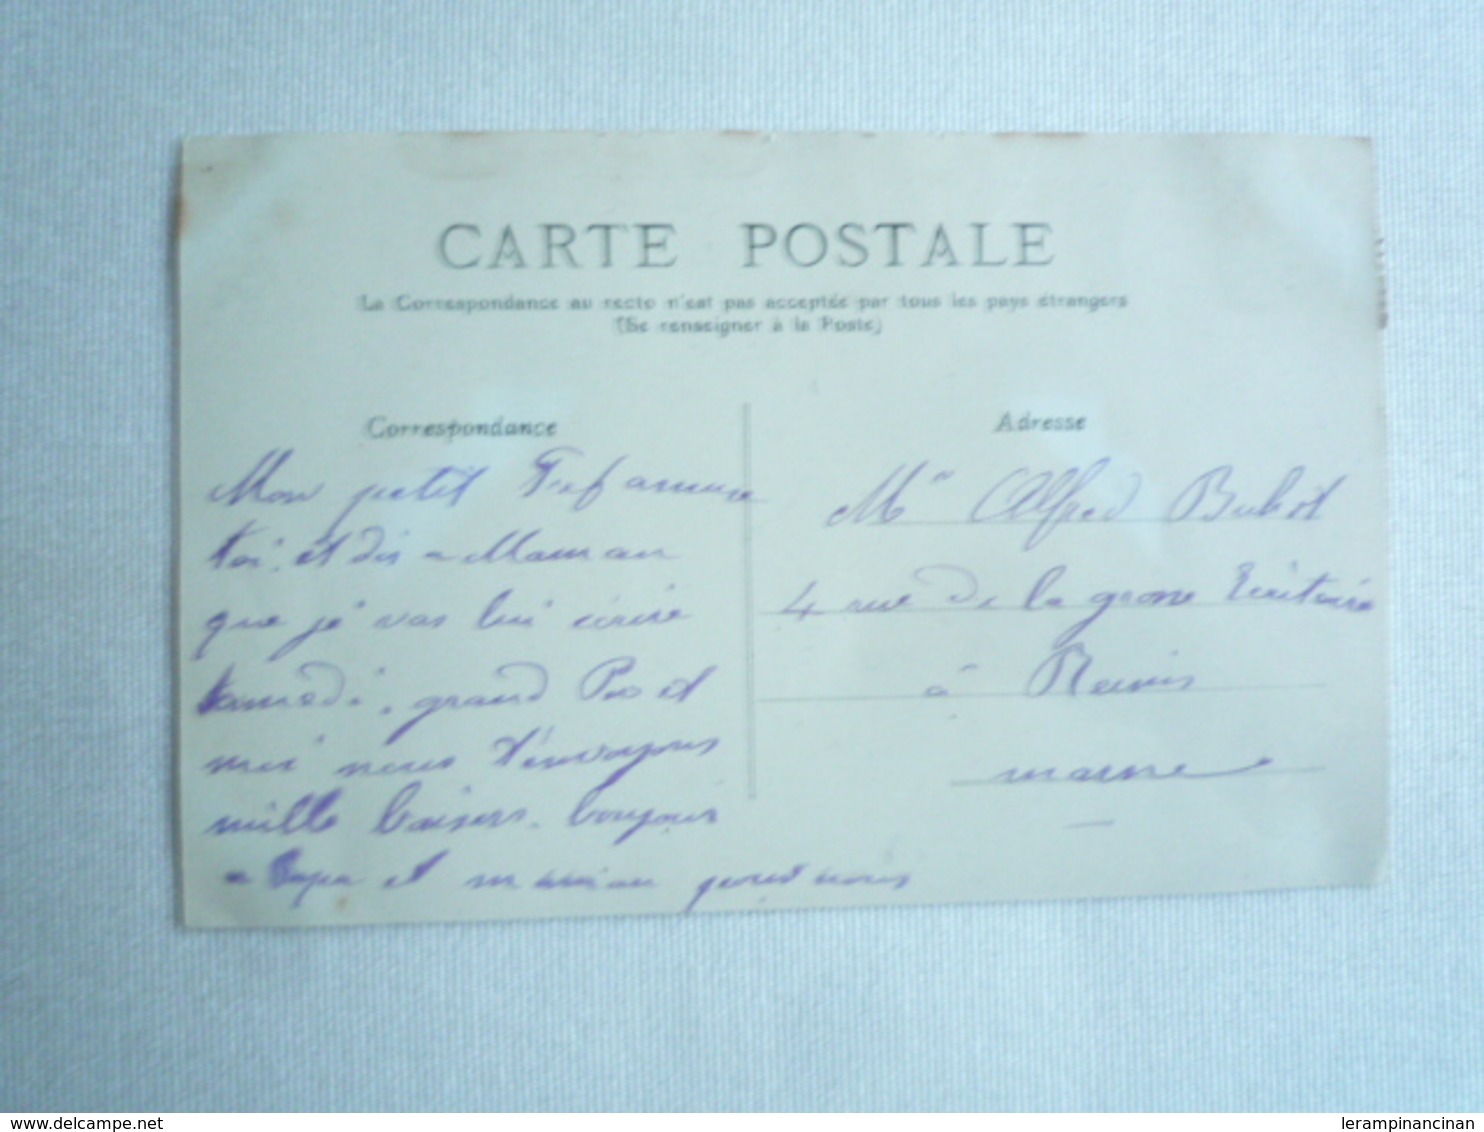 CARTE POSTALE
La Correspondance au recto n'est pas acceptée par tous les pays étrangers
(Se renseigner à la Poste)
Correspondance
Mon petit amuse
toi et dis a Maman
que je vas lui écrire
samedi, grand Père et
moi nous t'envoyons
mille baisers. bonjour
a Papa et maman pour nous
Adresse
Mr Alfred Bubot
4 rue de la grosse Ecritoire
à Reims
marne
delcampe.net
lerampinancinan